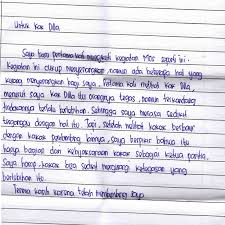 Untuk kak Dilla
Saya baru pertama kali mengikuti kegiatan Mos seperti ini.
Kegiatan ini cukup menyenangkan, namun ada beberapa hal yang
kurang menyenangkan bagi saya. Pertama kali melihat kak Dilla,
menurut saya kak Dilla itu orangnya tegas, namun terkadang
tindakannya terlalu berlebihan. Sehingga saya merasa sedikit
terganggu dengan hal itu. Tapi, setelah melihat kakak berbaur
dengan kakak pembimbing lainnya, saya berpikir bahwa itu
hanya bagian dari kebijaksanaan kakak sebagai ketua panitia.
Saya harap, kakak bisa sedikit mengurangi ketegasan yang
berlebihan itu.
Terima kasih karena telah membimbing saya